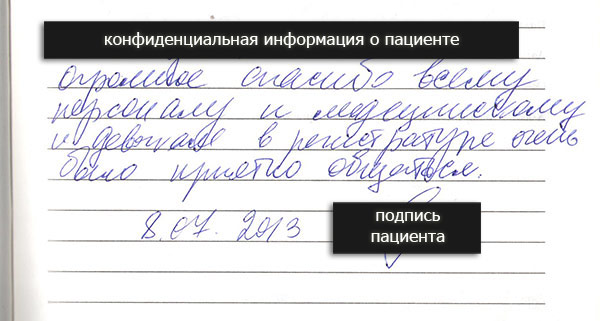 конфиденциальная информация о пациенте
огромное спасибо всему
персоналу и медецинскому
и девочкам в регистратуре очень
было приятно общаться.
8.07. 2013
подпись
пациента